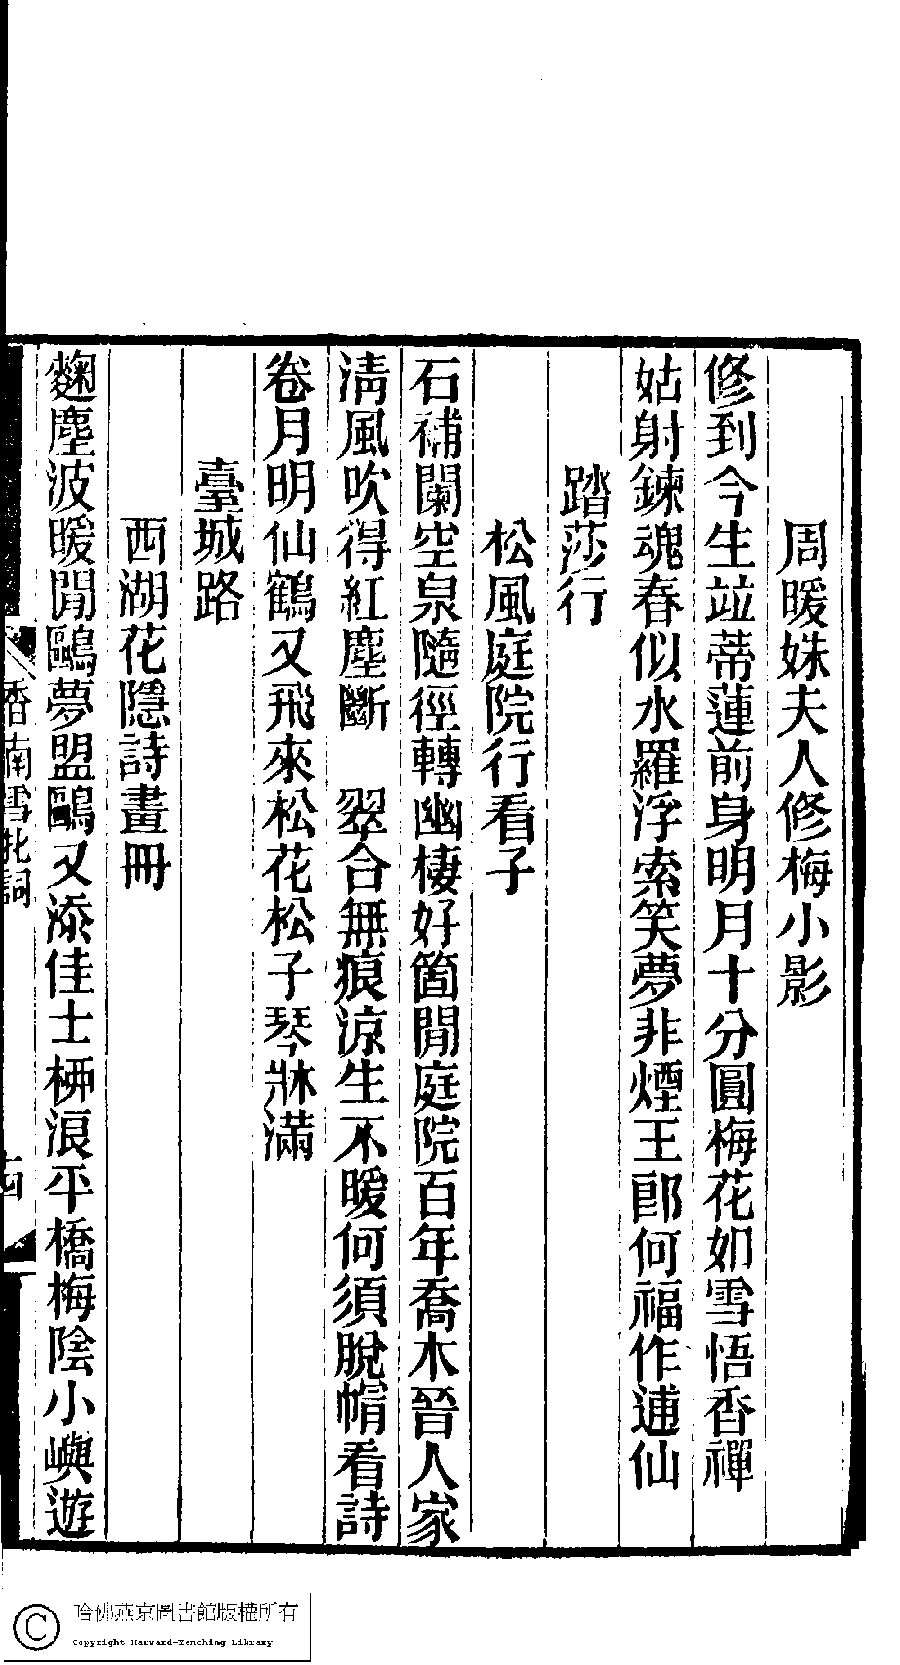 周暖姝夫人修梅小影
修到今生竝蒂蓮前身明月十分圓梅花如雪悟香禪
姑射鍊魂春似水羅浮索笑夢非煙王郎何福作逋仙
踏莎行
松風庭院行看子
石補闌空泉隨徑轉幽棲好箇閒庭院百年喬木晉人家
淸風吹得紅塵斷　翠合無痕涼生不暖何須脫帽看詩
卷月明仙鶴又飛來松花松子琴牀滿
臺城路
西湖花隱詩畫冊
麴塵波暖閒鷗夢盟鷗又添佳士桺浪平橋梅陰小嶼遊
香南雪北詞
哈佛燕京圖書館版權所有
Copyright Harvard-Yenching Library